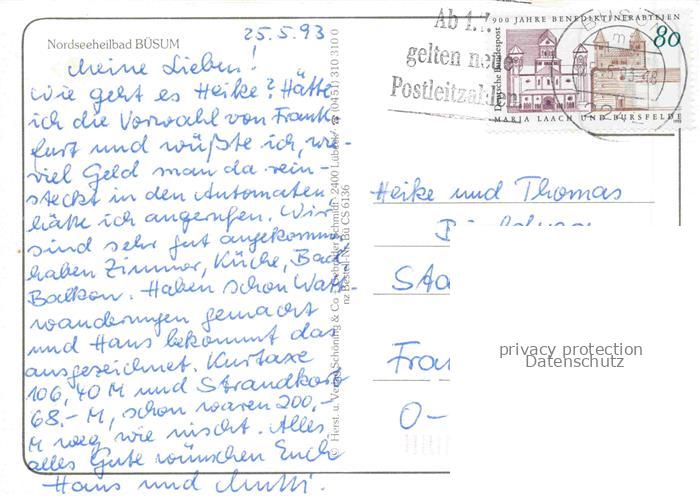 25.5.93
Nordseeheilbad BÜSUM
Meine Lieben!
Wie geht es Heike? Hätte
ich die Vorwahl von Frank-
furt und wüßte ich, wie-
viel Geld man da rein-
steckt in den Automaten
hätte ich angerufen. Wir
sind sehr gut angekommen,
haben Zimmer, Küche, Bad,
Balkon. Haben schon Watt-
wanderungen gemacht
und Hans bekommt das
ausgezeichnet. Kurtaxe
106,40 M und Strandkorb
68,- M, schon waren 200,-
M weg wie nischt. Alles
alles Gute wünschen Euch
Hans und Mutti.
© Herst. u. Verlag Schöning & Co. + Gebrüder Schmidt · 2400 Lübeck · ☎ (0451) 310 310 0
nz Bestell-Nr. Bü CS 6136
Ab 1.7.
gelten neue
Postleitzahlen
900 JAHRE BENEDIKTINERABTEIEN
80
Deutsche Bundespost
MARIA LAACH UND BURSFELDE
1993
BÜSUM
Heike und Thomas
Sta
Fran
O-
privacy protection
Datenschutz